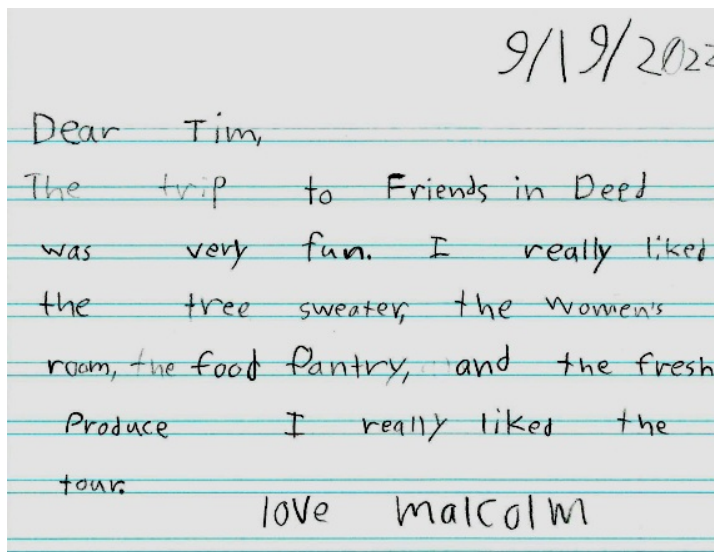 9/19/2022
Dear Tim,
The trip to Friends in Deed
was very fun. I really liked
the tree sweater, the women's
room, the food Pantry, and the fresh
Produce I really liked the
tour.
love malcolm